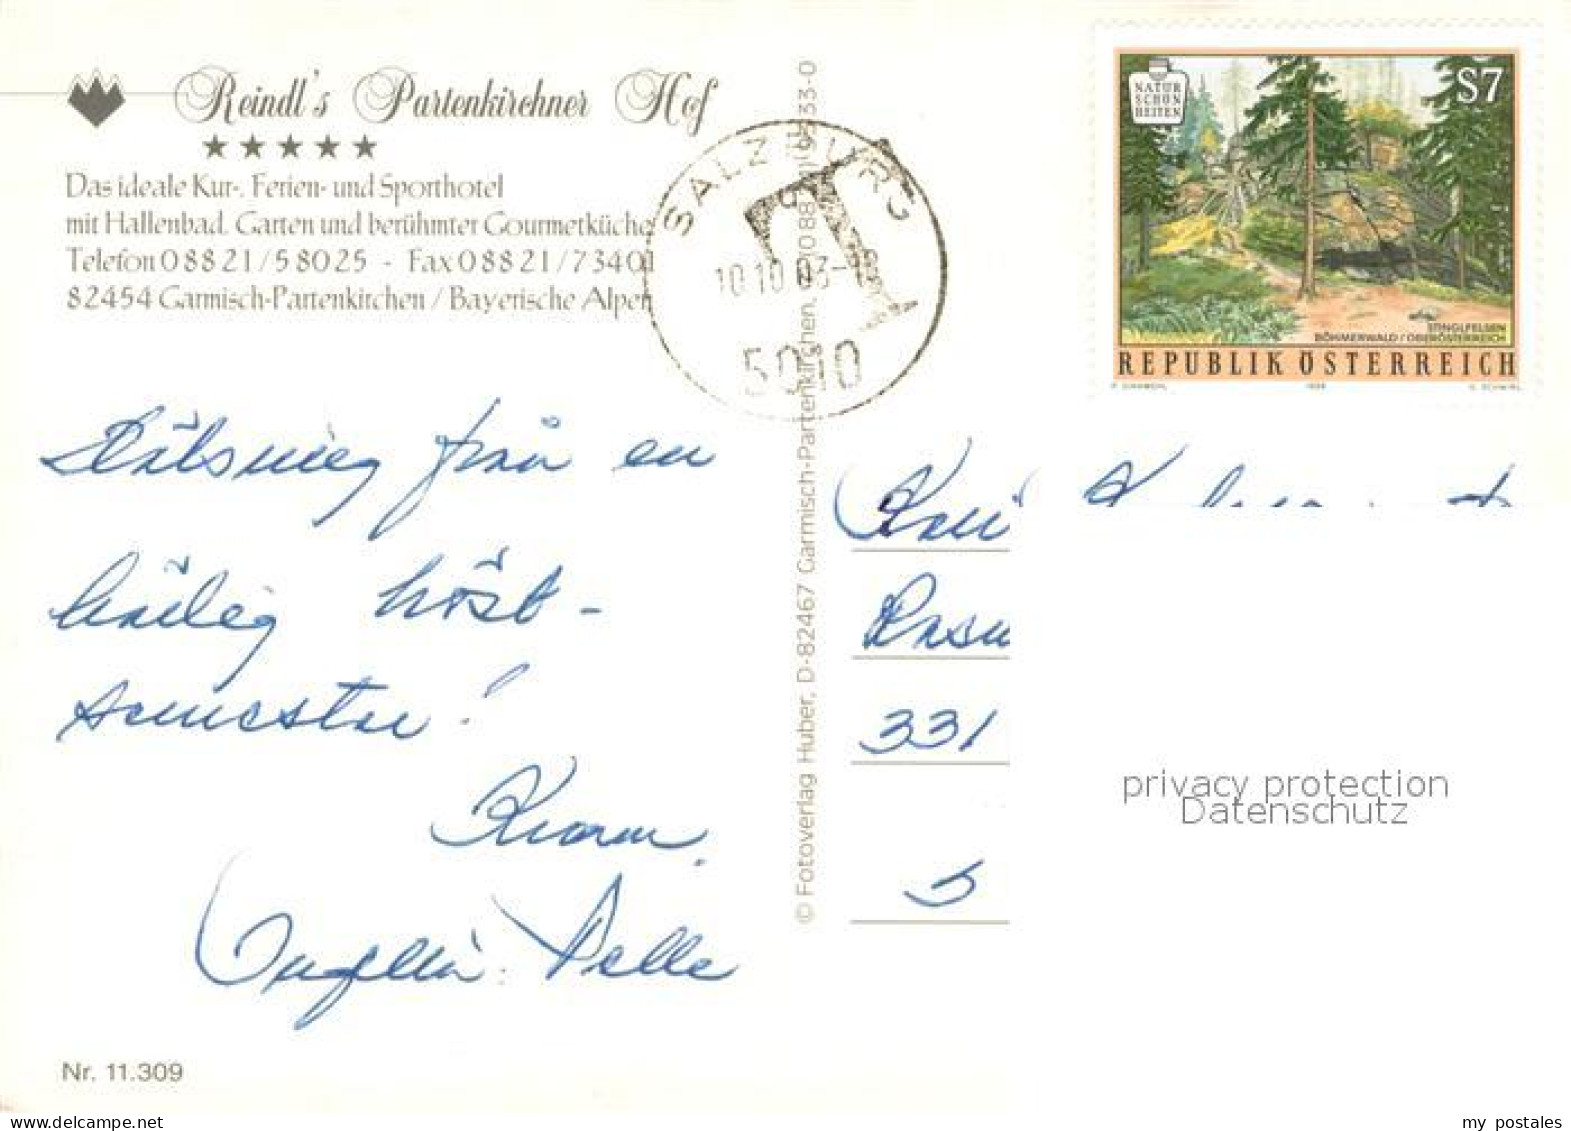 Reindl's Partenkirchner Hof
★★★★★
Das ideale Kur-, Ferien- und Sporthotel
mit Hallenbad, Garten und berühmter Gourmetküche
Telefon 08821/58025 - Fax 08821/73401
82454 Garmisch-Partenkirchen / Bayerische Alpen
SALZBURG
T
10.10.03
5010
NATUR
SCHÖN
HEITEN
S7
STINGLFELSEN
BÖHMERWALD/OBERÖSTERREICH
REPUBLIK ÖSTERREICH
© Fotoverlag Huber, D-82467 Garmisch-Partenkirchen,
från en
härlig höst-
semester!
Kram
Pelle
331
S
privacy protection
Datenschutz
Nr. 11.309
my postales